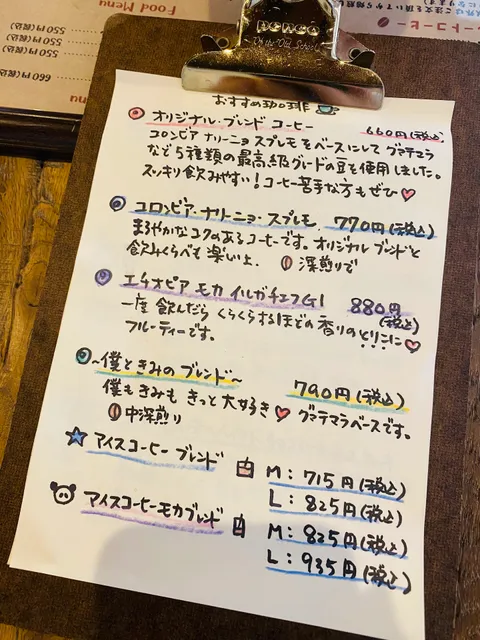 ートコーヒー
Food Menu
550円(税込)
550円(税込)
550円(税込)
660円(税込)
penco
おすすめ珈琲
オリジナル・ブレンド コーヒー 660円(税込)
コロンビア ナリーニョ スプレモをベースにして グマテマラ
など5種類の最高級グレードの豆を使用しました。
スッキリ飲みやすい！コーヒー苦手な方もぜひ♡
コロンビア・ナリーニョ・スプレモ 770円(税込)
まろやかなコクのあるコーヒーです。オリジナル ブレンドと
飲みくらべも楽しいよ. 深煎りで
エチオピア モカ イルガチェフG1 880円
(税込)
一度 飲んだら くらくらするほどの香りの とりこに♡
フルーティーです。
〜僕ときみの ブレンド〜 790円(税込)
僕もきみも きっと大好き♡ グマテマラベースです。
中深煎り
☆ アイスコーヒー ブレンド M：715円(税込)
L：825円(税込)
アイスコーヒーモカブレンド M：835円(税込)
L：935円(税込)